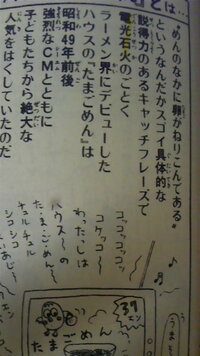 』とは…
〝めんのなかに卵がねりこんである〟
というなんだかスゴイ具体的な
説得力のあるキャッチフレーズで
電光石火のごとく
ラーメン界にデビューした
ハウスの『たまごめん』は
昭和49年前後
強烈なCMとともに
子どもたちから絶大な
人気をはくしていたのだ
コッコッコッ
コケコッコ
わったしは
ハウス〜の
た・ま・ご・め・ん
チュルチュル
シコシコ
39エン
たまごめん